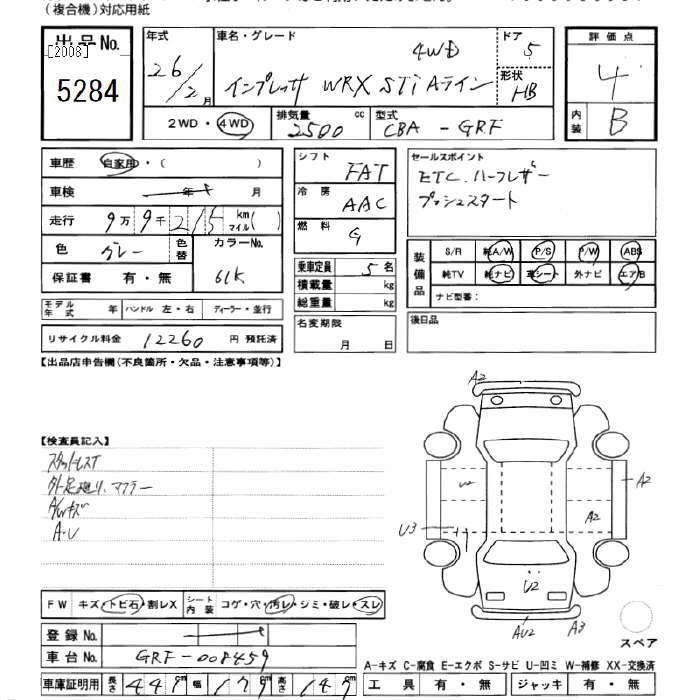 (複合機)対応用紙
出品No.
[2008]
5284
年式
26/2月
車名・グレード
4WD
インプレッサ WRX STI Aライン
ドア
5
形状
HB
2WD・4WD
排気量
2500 cc
型式
CBA-GRF
評価点
4
内装
B
車歴 自家用・( )
車検 年 月
走行 9万9千215 km マイル( )
色 グレー 色替
カラーNo.
61K
保証書 有・無
モデル年式 年 ハンドル 左・右 ディーラー・並行
リサイクル料金 12260 円 預託済
シフト FAT
冷房 AAC
燃料 G
乗車定員 5名
積載量 kg
総重量 kg
名変期限
月 日
セールスポイント
ETC.ハーフレザー
プッシュスタート
装備品
S/R 純A/W P/S P/W ABS
純TV 純ナビ 革シート 外ナビ エアB
ナビ型番:
後日品
【出品店申告欄(不良箇所・欠品・注意事項等)】
【検査員記入】
マフラー
A/Wキズ
A・U
A2
U2
A2
A2
U3
U2
AU2
A3
スペア
FW キズ・トビ石・割レX
シート内装 コゲ・穴・汚レ・シミ・破レ・スレ
登録No.
車台No. GRF-008459
車庫証明用 長さ 441cm 幅 179cm 高さ 147cm
A-キズ C-腐食 E-エクボ S-サビ U-凹ミ W-補修 XX-交換済
工具 有・無 ジャッキ 有・無